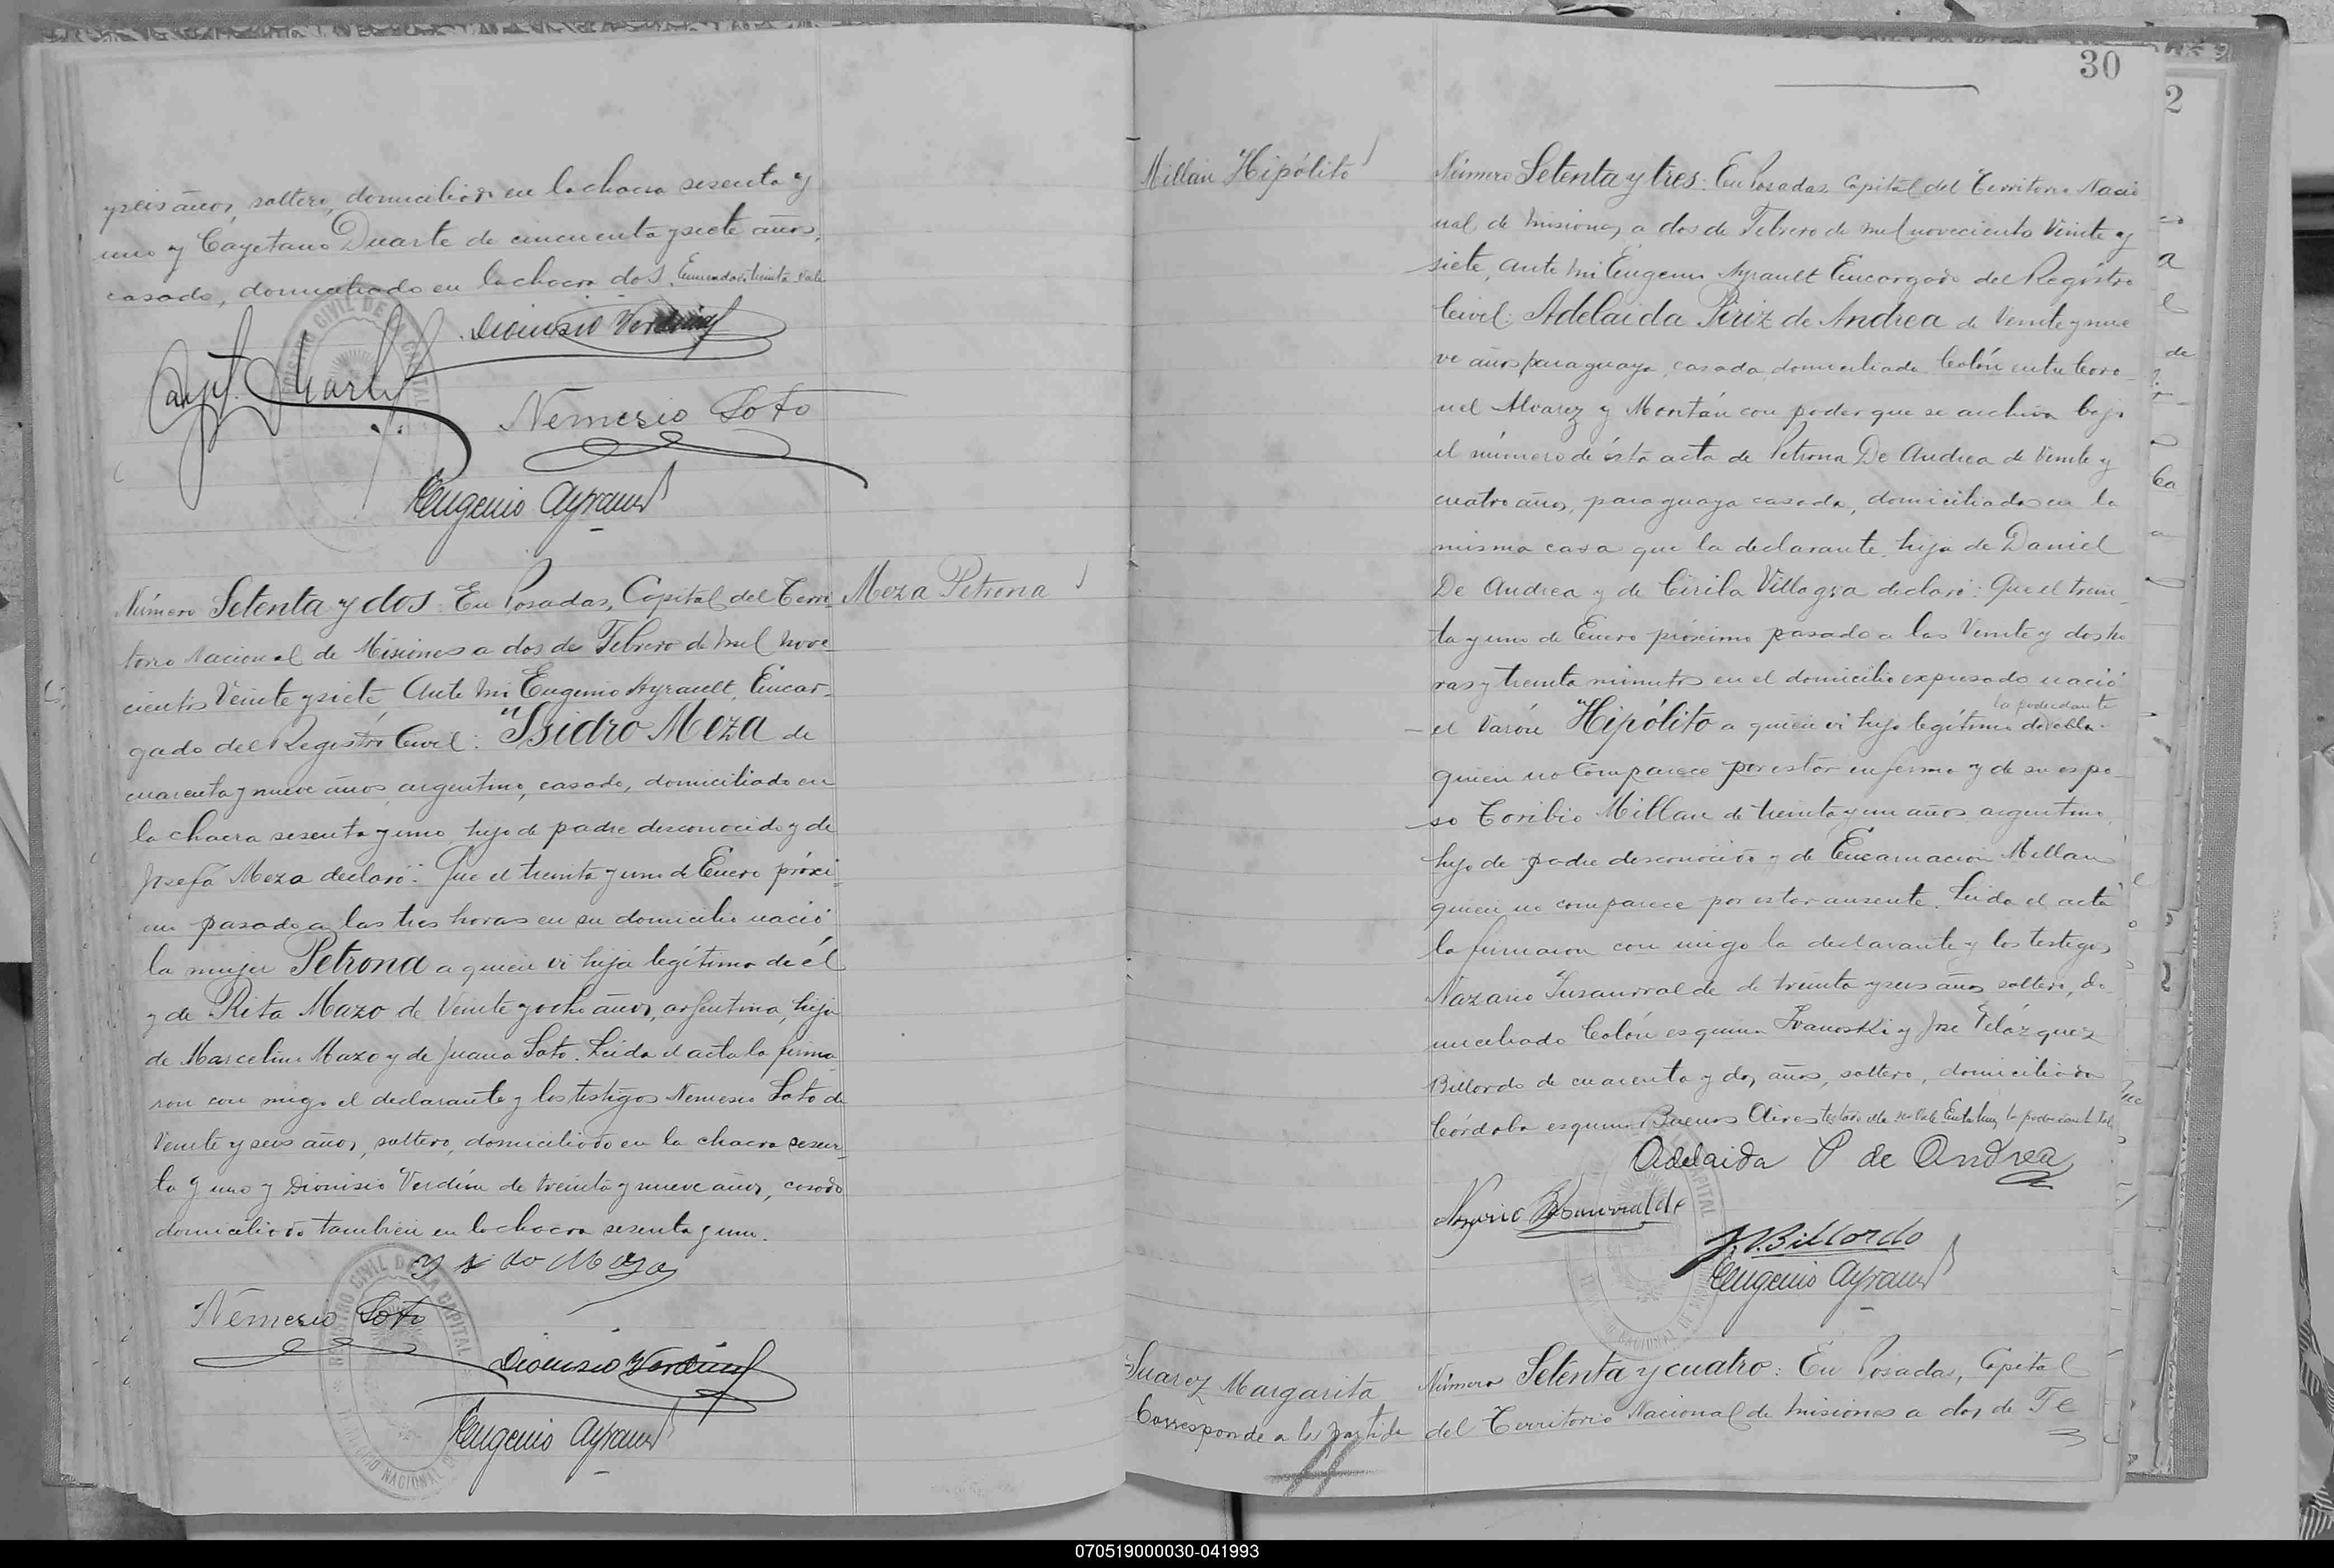 y seis años, soltero, domiciliado en la chacra sesenta y
uno y Cayetano Duarte de cincuenta y siete años,
casado, domiciliado en la chacra dos. Enmendado: treinta Vale
Dionisio Verdún
Nemesio Soto
Eugenio Ayrault
Meza Petrona
Número Setenta y dos: En Posadas, Capital del Terri-
torio Nacional de Misiones a dos de Febrero de mil nove-
cientos Veinte y siete, Ante mi Eugenio Ayrault, Encar-
gado del Registro Civil: "Isidro Meza de
cuarenta y nueve años, argentino, casado, domiciliado en
la chacra sesenta y uno, hijo de padre desconocido y de
Josefa Meza declaró: Que el treinta y uno de Enero próxi-
mo pasado a las tres horas en su domicilio nació
la mujer Petrona a quien vi hija legítima de él
y de Rita Mazo de Veinte y ocho años, argentina, hija
de Marcelino Mazo y de Juana Soto. Leida el acta la firma-
ron con migo el declarante y los testigos Nemesio Soto de
Veinte y seis años, soltero, domiciliado en la chacra sesen-
ta y uno y Dionisio Verdún de treinta y nueve años, casado
domiciliado también en la chacra sesenta y uno.
Ysido Meza
Nemesio Soto
Dionisio Verdún
Eugenio Ayrault
REGISTRO CIVIL DE LA CAPITAL
TERRITORIO NACIONAL DE
30
2
Millan Hipólito
Número Setenta y tres: En Posadas, Capital del Territorio Nacio-
nal de Misiones, a dos de Febrero de mil novecientos Veinte y
siete, ante mi Eugenio Ayrault Encargado del Registro
Civil: Adelaida Piriz de Andrea de Veinte y nue-
ve años, paraguaya, casada, domiciliada Colón entre Coro-
nel Alvarez y Montán con poder que se archiva bajo
el número de ésta acta de Petrona De Andrea de Veinte y
cuatro años, paraguaya casada, domiciliada en la
misma casa que la declarante, hija de Daniel
De Andrea y de Cirila Villagra declaró: Que el trein-
ta y uno de Enero próximo pasado a las Veinte y dos ho-
ras y treinta minutos en el domicilio expresado nació
la poderdante
el Varón "Hipólito a quien vi hijo legítimo de ella
quien no comparece por estar enferma y de su espo-
so Toribio Millan de treinta y un años, argentino,
hijo de padre desconocido y de Encarnación Millan
quien no comparece por estar ausente. Leida el acta
la firmaron con migo la declarante y los testigos
Nazario Insaurralde de treinta y seis años, soltero, do-
miciliado Colón esquina Ivanoski y José Velázquez
Billordo de cuarenta y dos años, soltero, domiciliado
Córdoba esquina Buenos Aires testado ella no Vale Entre lineas la poderdante Vale
Adelaida P de Andrea
Nazario Insaurralde
J. V. Billordo
Eugenio Ayrault
Suarez Margarita
Corresponde a la partida
Número Setenta y cuatro: En Posadas, Capital
del Territorio Nacional de Misiones a dos de Fe
070519000030-041993